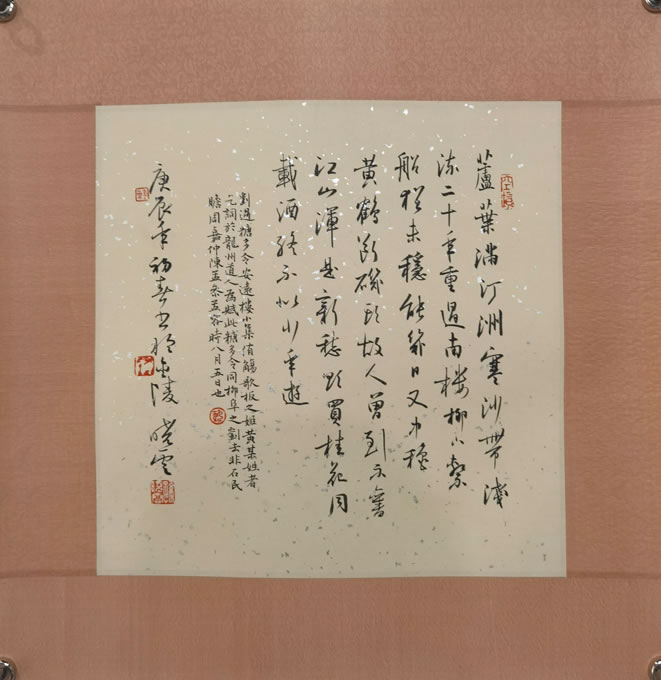 蘆葉滿汀洲寒沙帶淺
流二十年重過南樓柳下繫
船猶未穩能幾日又中穐
黃鶴斷磯頭故人曾到不舊
江山渾是新愁欲買桂花同
載酒終不似少年遊
劉過糖多令安遠樓小集侑觴歌板之姬黃某姓者
乞詞於龍州道人為賦此糖多令同柳阜之劉去非石民
瞻周嘉仲陳孟參孟容時八月五日也
庚辰年初春書於金陵 曉雲